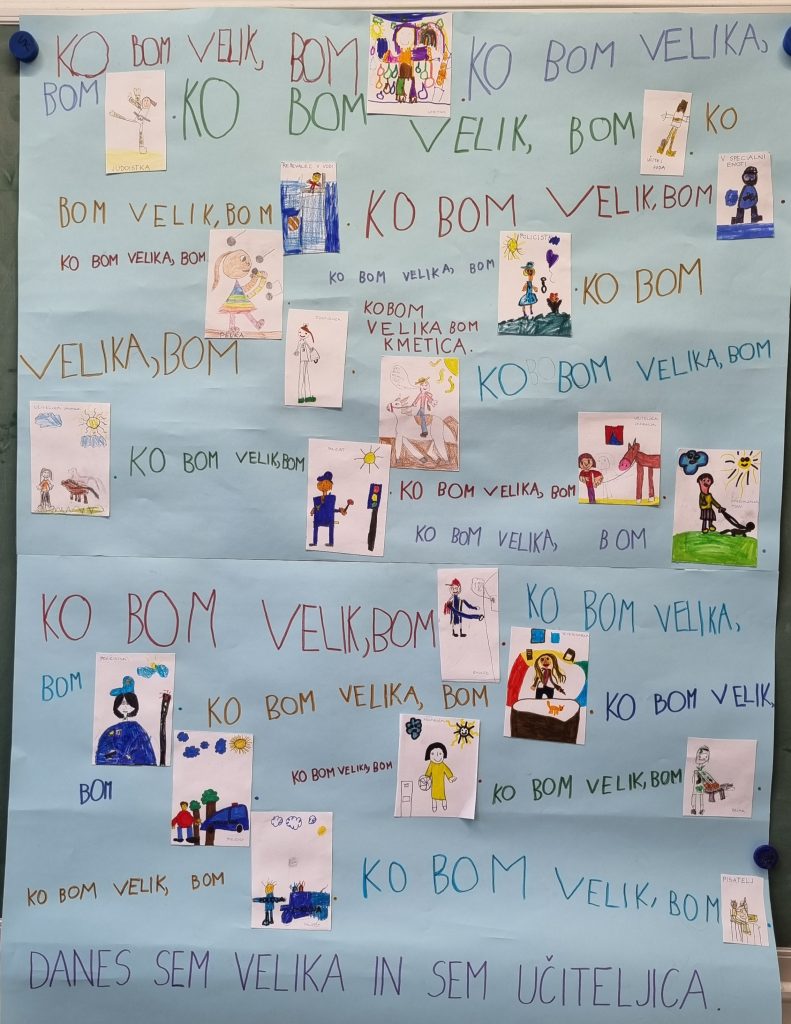 KO BOM VELIK, BOM
KO BOM VELIKA,
BOM
JUDOISTKA
.KO BOM VELIK, BOM
UČITELJ
JUDA
. KO
BOM VELIK, BOM
V SPECIALNI
ENOTI
KO BOM VELIK, BOM
.
KO BOM VELIKA, BOM
PEVKA
.
KO BOM VELIKA, BOM
POLICISTKA
. KO BOM
VELIKA, BOM
.
KO BOM
VELIKA BOM
KMETICA.
KO BO BOM VELIKA, BOM
UČITELJICA JAHANJA
. KO BOM VELIK, BOM
. KO BOM VELIKA, BOM
UČITELJICA
JAHANJA
.
KO BOM VELIKA, BOM
.
KO BOM VELIK, BOM
.
KO BOM VELIKA,
BOM
POLICISTKA
. KO BOM VELIKA, BOM
. KO BOM VELIK,
BOM
.
KO BOM VELIKA, BOM
.
KO BOM VELIK, BOM
.
KO BOM VELIK, BOM
.
KO BOM VELIK, BOM
PISATELJ
.
DANES SEM VELIKA IN SEM UČITELJICA.